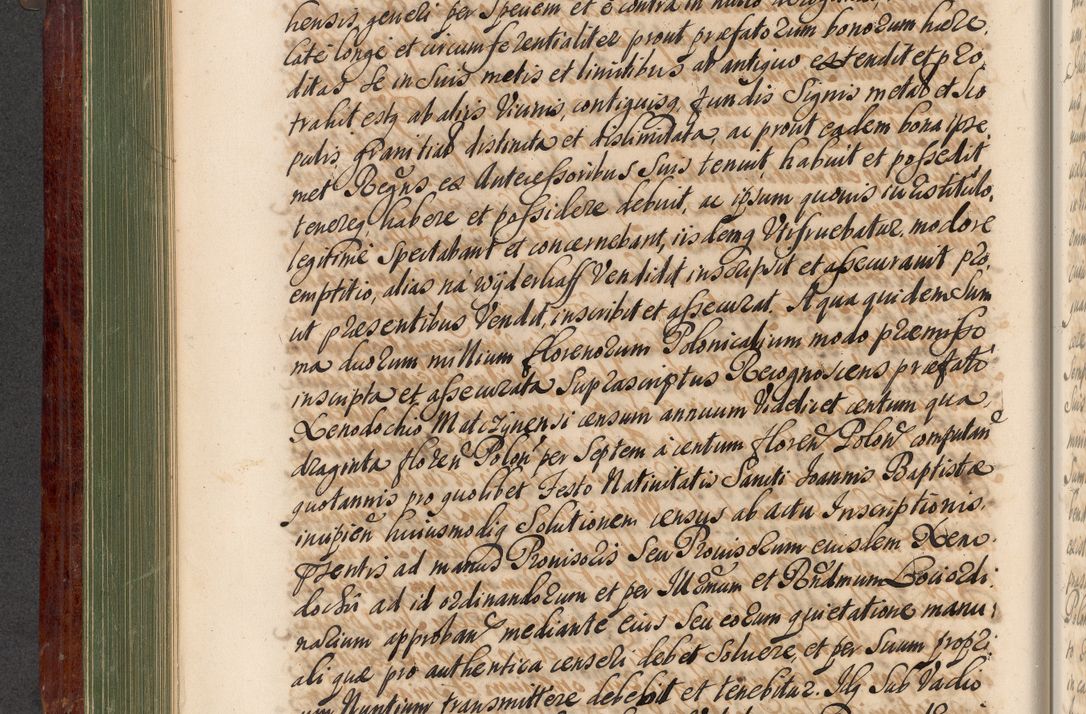 hensis, generi per Speciem et è contra in nullo
latè longè et circumferentialiter prout præfatorum bonorum hære,
ditas se in Suis metis et limitibus ab antiquo extendit et pro,
trahit estq ab aliis Viciniis, contiguisq fundis Signis metal: et Sco
pulis granitial: distincta et dislimitata, ac prout eadem bona ipse,
met Regns ex Antecessoribus Suis tenuit, habuit et possedit
tenereq habere et possidere debuit, ac ipsum quovis iuris titulo,
legitimè Spectabant et concernebant, iisdemq Utifruebatur, modo re
emptitio, alias na wyderkaff Vendidit inscripsit et assecuravit pro,
ut præsentibus Vendit, inscribit et assecurat. A qua quidem Sum
ma duorum millium florenorum Polonicalium modo præmisso
inscripta et assecurata Suprascriptus Recognoscens præfato
Xenodochio Matczynensi censum annuum Videlicet centum qua,
draginta floren Polon per Septem à centum floren Polon computan
quotannis pro quolibet Festo Nativitatis Sancti Joannis Baptistæ
incipien huiusmodiq Solutionem census ab actu Inscriptionis,
præsentis ad manus Provisoris Seu Provisorum eiusdem Xeno,
dochii ad id ordinandorum et per Illrmum et Rndmum Loci Ordi
narium approban mediante eius Seu eorum quietatione manu,
ali quæ pro authentica censeri debet Solvere, et per Suum propri
um Nuntium transmittere debebit et tenebitur. Idq Sub Vadio